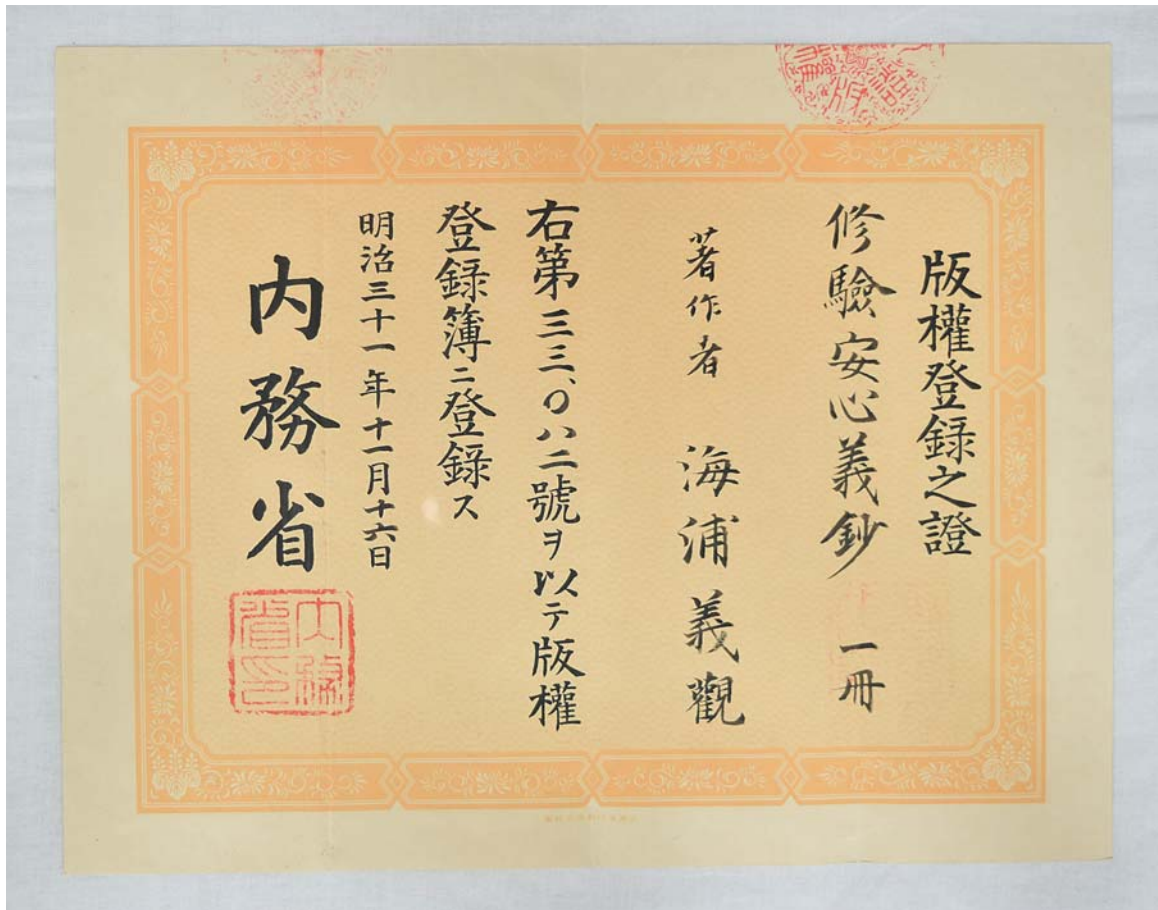 版權登錄之證
修驗安心義鈔 一冊
著作者 海浦義觀
右第三三、〇八二號ヲ以テ版權
登錄簿ニ登錄ス
明治三十一年十一月十六日
內務省
內務省印